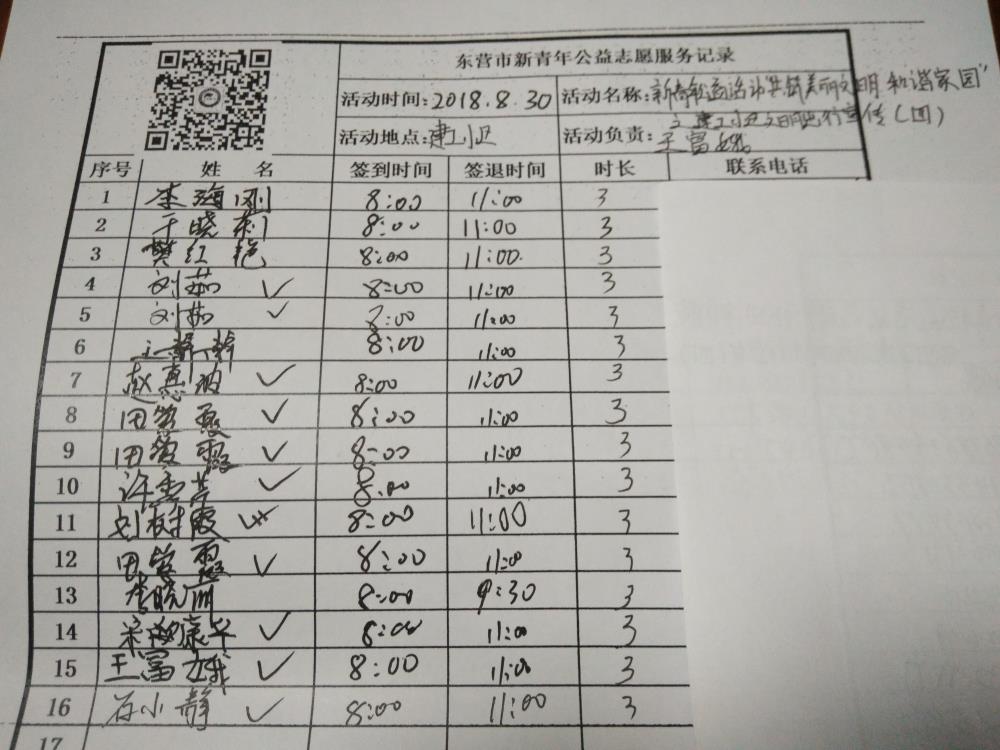 东营市新青年公益志愿服务记录
活动时间:2018.8.30 活动名称:美丽文明 和谐家园"
宣传(四)
活动地点:建小区 活动负责:王富娥
序号 姓 名 签到时间 签退时间 时长 联系电话
1 李海刚 8:00 11:00 3
2 于晓莉 8:00 11:00 3
3 樊红艳 8:00 11:00. 3
4 刘茹 ✓ 8:00 11:00 3
5 刘茹 ✓ 8:00 11:00 3
6 王 8:00 11:00 3
7 赵惠波 ✓ 8:00 11:00 3
8 田 ✓ 8:00 11:00 3
9 田 霞 ✓ 8:00 11:00 3
10 许 ✓ 8:00 11:00 3
11 刘树霞 8:00 11:00 3
12 田 霞 ✓ 8:00 11:00 3
13 李晓丽 8:00 9:30 3
14 宋 康华 ✓ 8:00 11:00 3
15 王富娥 ✓ 8:00 11:00 3
16 石小静 ✓ 8:00 11:00 3
17